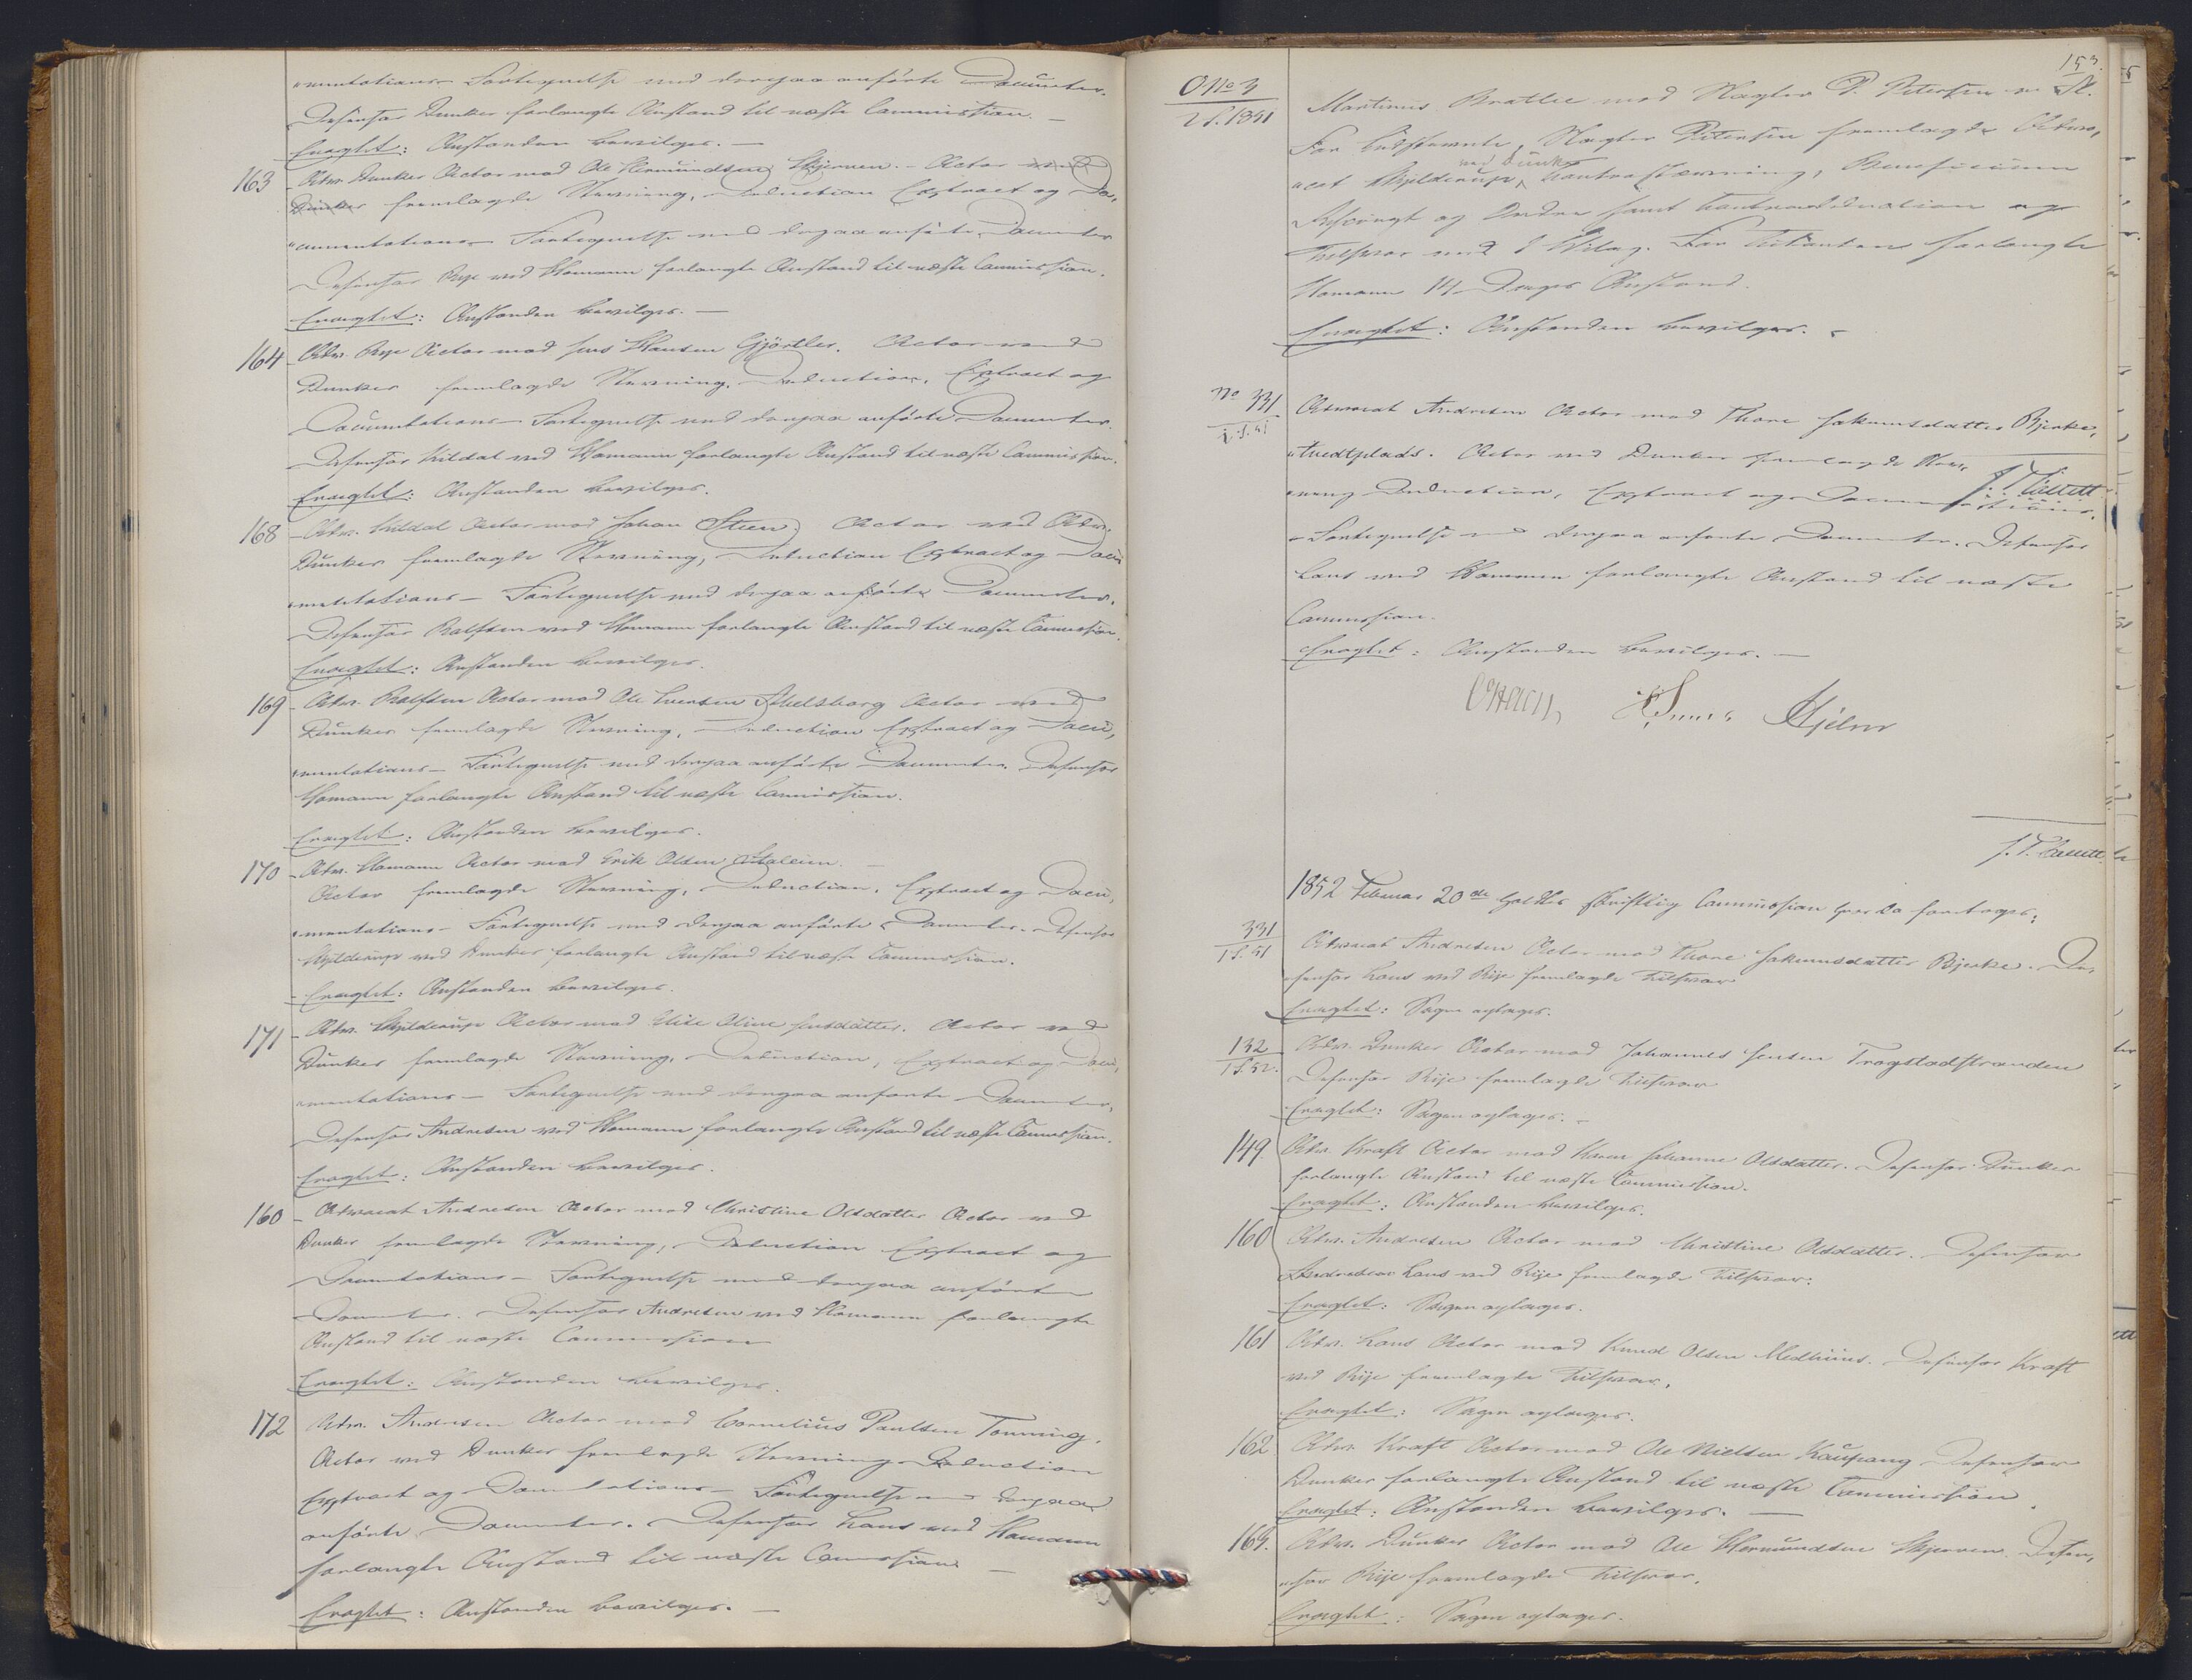 mentations-Fortegnelse med derpaa anførte Documenter.
Defensor Dunker forlangte Anstand til næste Commission. –
Eragtet: Anstanden bevilges. –
163 Adv. Dunker Actor mod Ole Hermundsen Skjerven. – Actor
fremlagde Stevning, Deduction Extract og Do-
cumentations-Fortegnelse med derpaa anførte Documenter
Defensor Rye ved Homann forlangte Anstand til næste Commission.
Eragtet: Anstanden bevilges. –
164 Adv. Rye Actor mod Jens Hansen Gjørtler. Actor ved
Dunker fremlagde Stevning, Deduction, Extract og
Documentations-Fortegnelse med derpaa anførte Documenter.
Defensor Kildal ved Homann forlangte Anstand til næste Commission.
Eragtet: Anstanden bevilges.
168 Adv. Kildal Actor mod Johan Steen. Actor ved Adv.
Dunker fremlagde Stevning, Deduction Extract og Docu-
mentations-Fortegnelse med derpaa anførte Documenter.
Defensor Rolfsen ved Homann forlangte Anstand til næste Commission.
Eragtet: Anstanden bevilges.
169 Adv. Rolfsen Actor mod Ole Iversen Actor ved
Dunker fremlagde Stevning, Deduction Extract og Docu-
mentations-Fortegnelse med derpaa anførte Documenter. Defensor
Homann forlangte Anstand til næste Commission.
Eragtet: Anstanden bevilges.
170 Adv. Homann Actor mod Erik Olsen
Actor fremlagde Stevning, Deduction, Extract og Docu-
mentations-Fortegnelse med derpaa anførte Documenter. Defensor
Skjelderup ved Dunker forlangte Anstand til næste Commission.
Eragtet: Anstanden bevilges.
171 Adv. Skjelderup Actor mod Eline Jensdatter. Actor ved
Dunker fremlagde Stevning, Deduction, Extract og Docu-
mentations-Fortegnelse med derpaa anførte Documenter,
Defensor Andresen ved Homann forlangte Anstand til næste Commission.
Eragtet: Anstanden bevilges.
160 Advocat Andresen Actor mod Christine Olsdatter Actor ved
Dunker fremlagde Stevning, Deduction Extract og
Documentations-Fortegnelse med derpaa anførte
Documenter. Defensor Andresen ved Homann forlangte
Anstand til næste Commission
Eragtet: Anstanden bevilges.
172 Adv. Andresen Actor mod Cornelius Paulsen Tonning.
Actor ved Dunker fremlagde Stevning Deduction
Extract og Documentations-Fortegnelse med derpaa
anførte Documenter. Defensor Lous ved Homann
forlangte Anstand til næste Commission –
Eragtet: Anstanden bevilges. –
153.
O No 3
2 S. 1851
Martinus Bratlie mod Slagter P. Petersen
For Indstevnte, Slagter Petersen fremlagde Advo-
ved Dunker
cat Skjelderup Contrastævning, Beneficium
og Orden samt Contradeduction og
Tilsvar med 1 Bilag. For Citanten forlangte
Homann 14 Dages Anstand.
Eragtet: Anstanden bevilges. –
No 331
1. S. 51
Advocat Andresen Actor mod Thore Jakumsdatter Bjerke-
tvedtplads. Actor ved Dunker fremlagde Stev-
ning Deduction, Extract og Documentations-
Fortegnelse med derpaa anførte Documenter. Defensor
Lous ved Homann forlangte Anstand til næste
Commission.
Eragtet: Anstanden bevilges. –
1852 Februar 20de holdtes skriftlig Commission hvor da foretoges:
331
1 S. 51
Advocat Andresen Actor mod Thore Jakumsdatter Bjerke. De-
fensor Lous ved Rije fremlagde Tilsvar
Eragtet: Sagen optages.
132
1 S. 52.
Adv. Dunker Actor mod Johannes Jensen Trogstadstranden
Defensor Rije fremlagde Tilsvar
Eragtet: Sagen optages. –
149. Adv. Kraft Actor mod Karen Johanne Olsdatter. Defensor Dunker
forlangte Anstand til næste Commission.
Eragtet: Anstanden bevilges.
160 Adv. Andresen Actor mod Christine Olsdatter. Defensor
Lous ved Rije fremlagde Tilsvar.
Eragtet: Sagen optages.
161 Adv. Lous Actor mod Knud Olsen Medhuus. Defensor Kraft
ved Rije fremlagde Tilsvar.
Eragtet: Sagen optages.
162 Adv. Kraft Actor mod Ole Nielsen Kaupang Defensor
Dunker forlangte Anstand til næste Commission.
Eragtet: Anstanden bevilges. –
163. Adv. Dunker Actor mod Ole Hermundsen Skjerven. Defen-
sor Rije fremlagde Tilsvar.
Eragtet: Sagen optages.